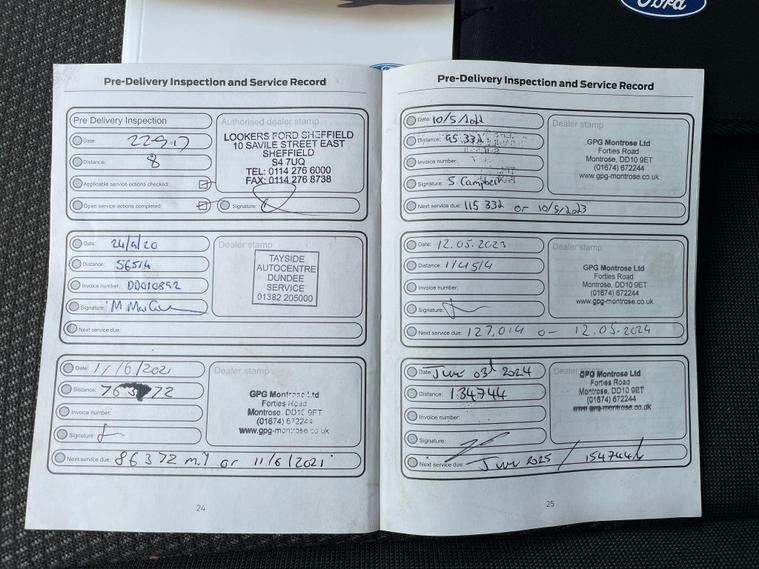 Ford
Pre-Delivery Inspection and Service Record
Pre Delivery Inspection
Date: 22-9-17
Distance: 8
Applicable service actions checked:
Open service actions completed:
Authorised dealer stamp
LOOKERS FORD SHEFFIELD
10 SAVILE STREET EAST
SHEFFIELD
S4 7UQ
TEL: 0114 276 6000
FAX: 0114 276 8738
Signature:
Date: 24/9/20
Distance: 56514
Invoice number: DD010892
Signature:
Next service due:
Dealer stamp
TAYSIDE
AUTOCENTRE
DUNDEE
SERVICE
01382 205000
Date: 11/6/2021
Distance: 76372
Invoice number:
Signature:
Next service due: 86372 or 11/6/2021
Dealer stamp
GPG Montrose Ltd
Forties Road
Montrose, DD10 9ET
(01674) 672244
www-gpg-montrose.co.uk
24
Pre-Delivery Inspection and Service Record
Date: 10/5/2022
Distance: 95332
Invoice number:
Signature: S Campbell
Next service due: 115 332 or 10/5/2023
Dealer stamp
GPG Montrose Ltd
Forties Road
Montrose, DD10 9ET
(01674) 672244
www.gpg-montrose.co.uk
Date: 12.05.2023
Distance:
Invoice number:
Signature:
Next service due: 127,014 or 12.05.2024
Dealer stamp
GPG Montrose Ltd
Forties Road
Montrose, DD10 9ET
(01674) 672244
www.gpg-montrose.co.uk
Date: June 03rd 2024
Distance: 134744
Invoice number:
Signature:
Next service due: June 2025 / 154744
Dealer stamp
GPG Montrose Ltd
Forties Road
Montrose, DD10 9ET
(01674) 672244
www.gpg-montrose.co.uk
25